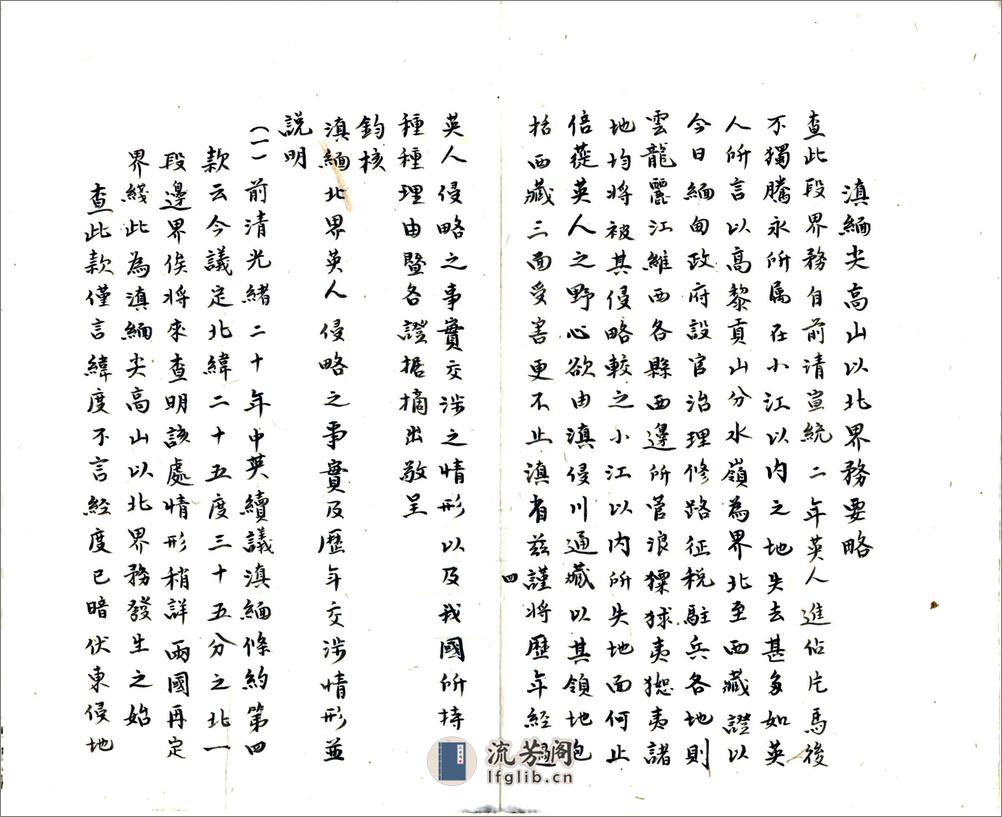 滇緬尖高山以北界務要略
查此段界務自前清宣統二年英人進佔片馬後
不獨騰永所属在小江以内之地失去甚多如英
人所言以高黎貢山分水嶺為界北至西藏證以
今日緬甸政府設官治理修路征税駐兵各地則
雲龍麗江維西各縣西邊所管浪猓猋夷㹨夷諸
地均將被其侵略較之小江以内所失地面何止
倍蓰英人之野心欲由滇侵川通藏以其領地包
括西藏三面受害更不止滇省兹謹將歷年經過
四
英人侵略之事實交涉之情形以及我國所持
種種理由暨各證据摘出敬呈
鈞核
滇緬北界英人侵略之事實及歷年交涉情形並
説明
(一)前清光緒二十年中英續議滇緬條約第四
款云今議定北緯二十五度三十五分之北一
段邊界俟將來查明該處情形稍詳兩國再定
界綫此為滇緬尖高山以北界務發生之始
查此款僅言緯度不言經度已暗伏東侵地
流芳阁
lfglib.cn